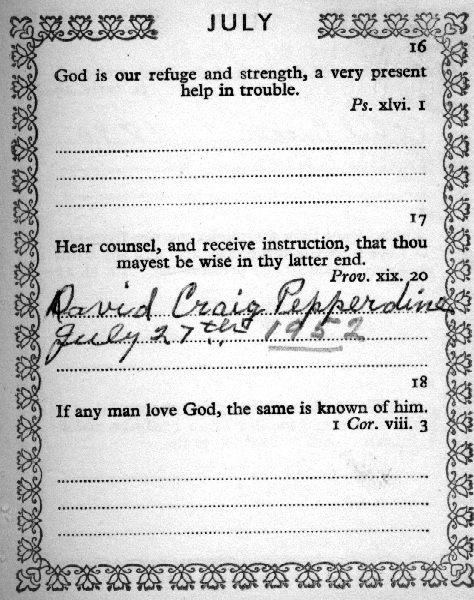 JULY
16
God is our refuge and strength, a very present
help in trouble.
Ps. xlvi. 1
17
Hear counsel, and receive instruction, that thou
mayest be wise in thy latter end.
Prov. xix. 20
David Craig Pepperdine
July 27th 1952
18
If any man love God, the same is known of him.
1 Cor. viii. 3